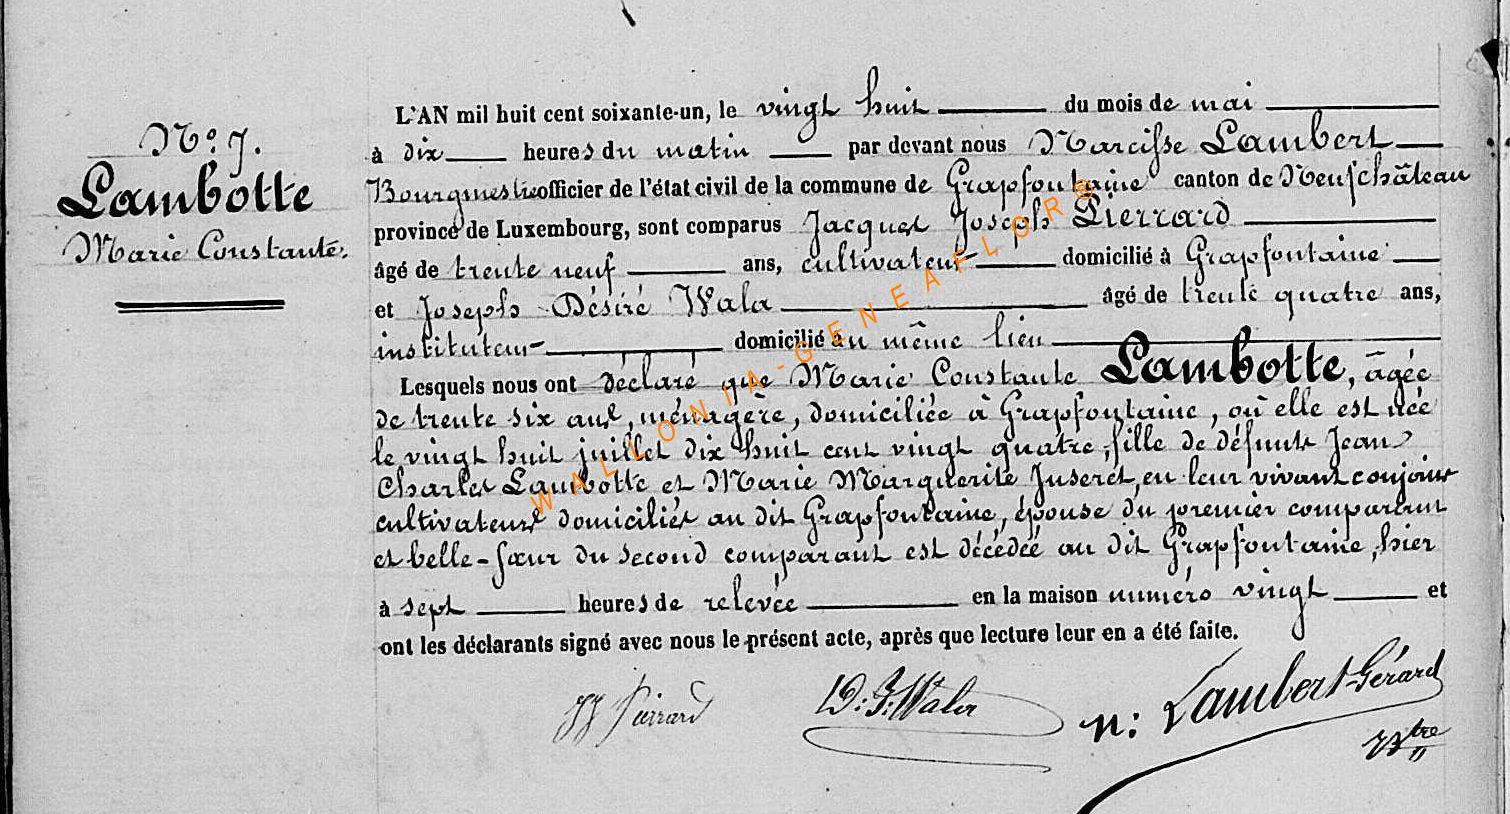 N° 7.
Lambotte
Marie Constante.
L'AN mil huit cent soixante-un, le vingt huit du mois de mai
à dix heures du matin par devant nous Narcisse Lambert
Bourgmestre officier de l'état civil de la commune de Grapfontaine canton de Neufchâteau
province de Luxembourg, sont comparus Jacques Joseph Pierrard
âgé de trente neuf ans, cultivateur domicilié à Grapfontaine
et Joseph Désiré Wala âgé de trente quatre ans,
instituteur domicilié au même lieu
Lesquels nous ont déclaré que Marie Constante Lambotte, âgée
de trente six ans, ménagère, domiciliée à Grapfontaine, où elle est née
le vingt huit juillet dix huit cent vingt quatre, fille de défunts Jean
Charles Lambotte et Marie Marguerite Juseret, en leur vivant conjoints
cultivateurs domiciliés au dit Grapfontaine, épouse du premier comparant
et belle-sœur du second comparant est décédée au dit Grapfontaine, hier
à sept heures de relevée en la maison numéro vingt et
ont les déclarants signé avec nous le présent acte, après que lecture leur en a été faite.
JJ Pierrard
D: J. Wala
N: Lambert-Gérard
Btre
WALLONIA-GENEAFLORE